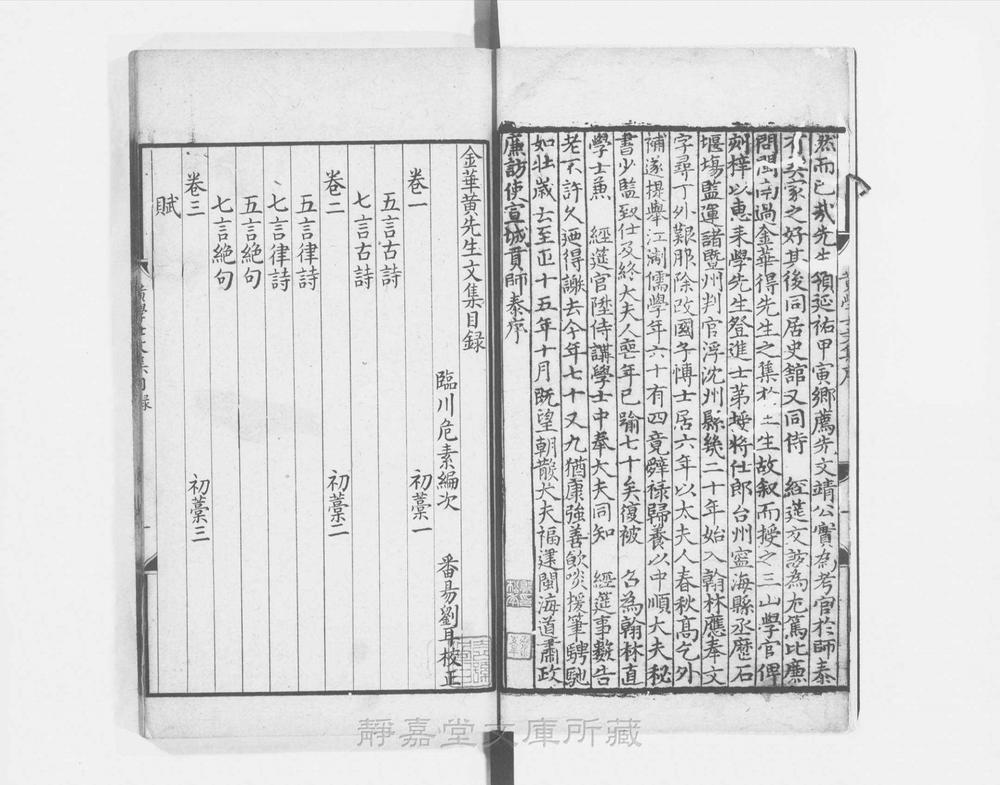 然而已哉先生領延祐甲寅鄉薦先文靖公實為考官於師泰
有世家之好其後同居史館又同侍 經筵交誼為尤篤比廉
問閩南過金華得先生之集於 生故叙而授之三山學官俾
刻梓以惠来學先生登進士第授將仕郎台州寧海縣丞歷石
堰塲監運諸曁州判官浮沈州縣幾二十年始入翰林應奉文
字尋丁外艱服除改國子博士居六年以太夫人春秋髙乞外
補遂提舉江淛儒學年六十有四竟辭禄歸養以中順大夫秘
書少監致仕及終太夫人喪年已踰七十矣復被 召為翰林直
學士兼 經筵官陞侍講學士中奉大夫同知 經筵事數告
老不許久廼得謝去今年七十又九猶康強善飲啖援筆騁馳
如壯歳云至正十五年十月既望朝散大夫福建閩海道肅政
廉訪使宣城貢師泰序
金華黄先生文集目録
臨川危素編次 番昜劉耳校正
卷一 初藁一
五言古詩
七言古詩
卷二 初藁二
五言律詩
七言律詩
五言絶句
七言絶句
卷三 初藁三
賦
黄學士文集目録
靜嘉堂文庫所藏